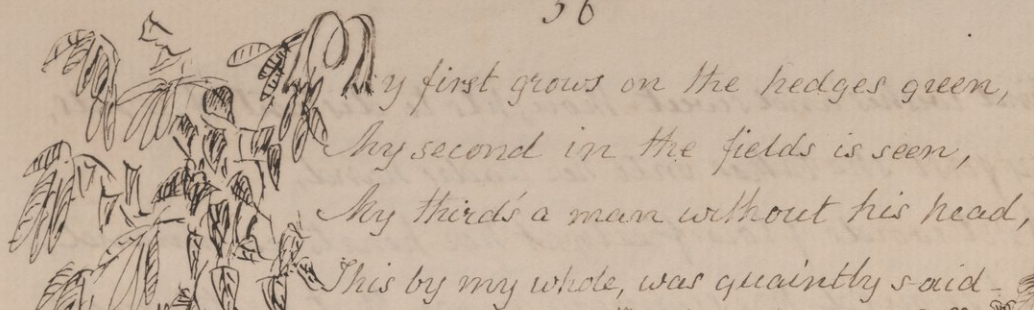 36
My first grows on the hedges green,
My second in the fields is seen,
My third's a man without his head,
This by my whole, was quaintly said -